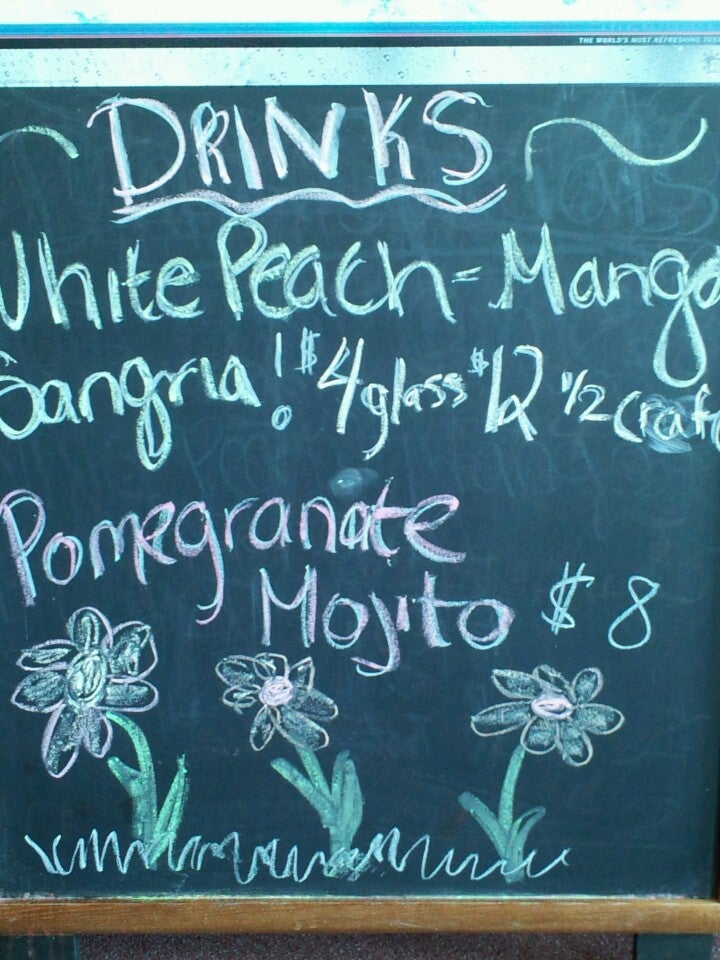 THE WORLD'S MOST REFRESHING BEER
DRINKS
White Peach - Mango
Sangria! $4 glass $12 1/2 Craf
Pomegranate
Mojito $8